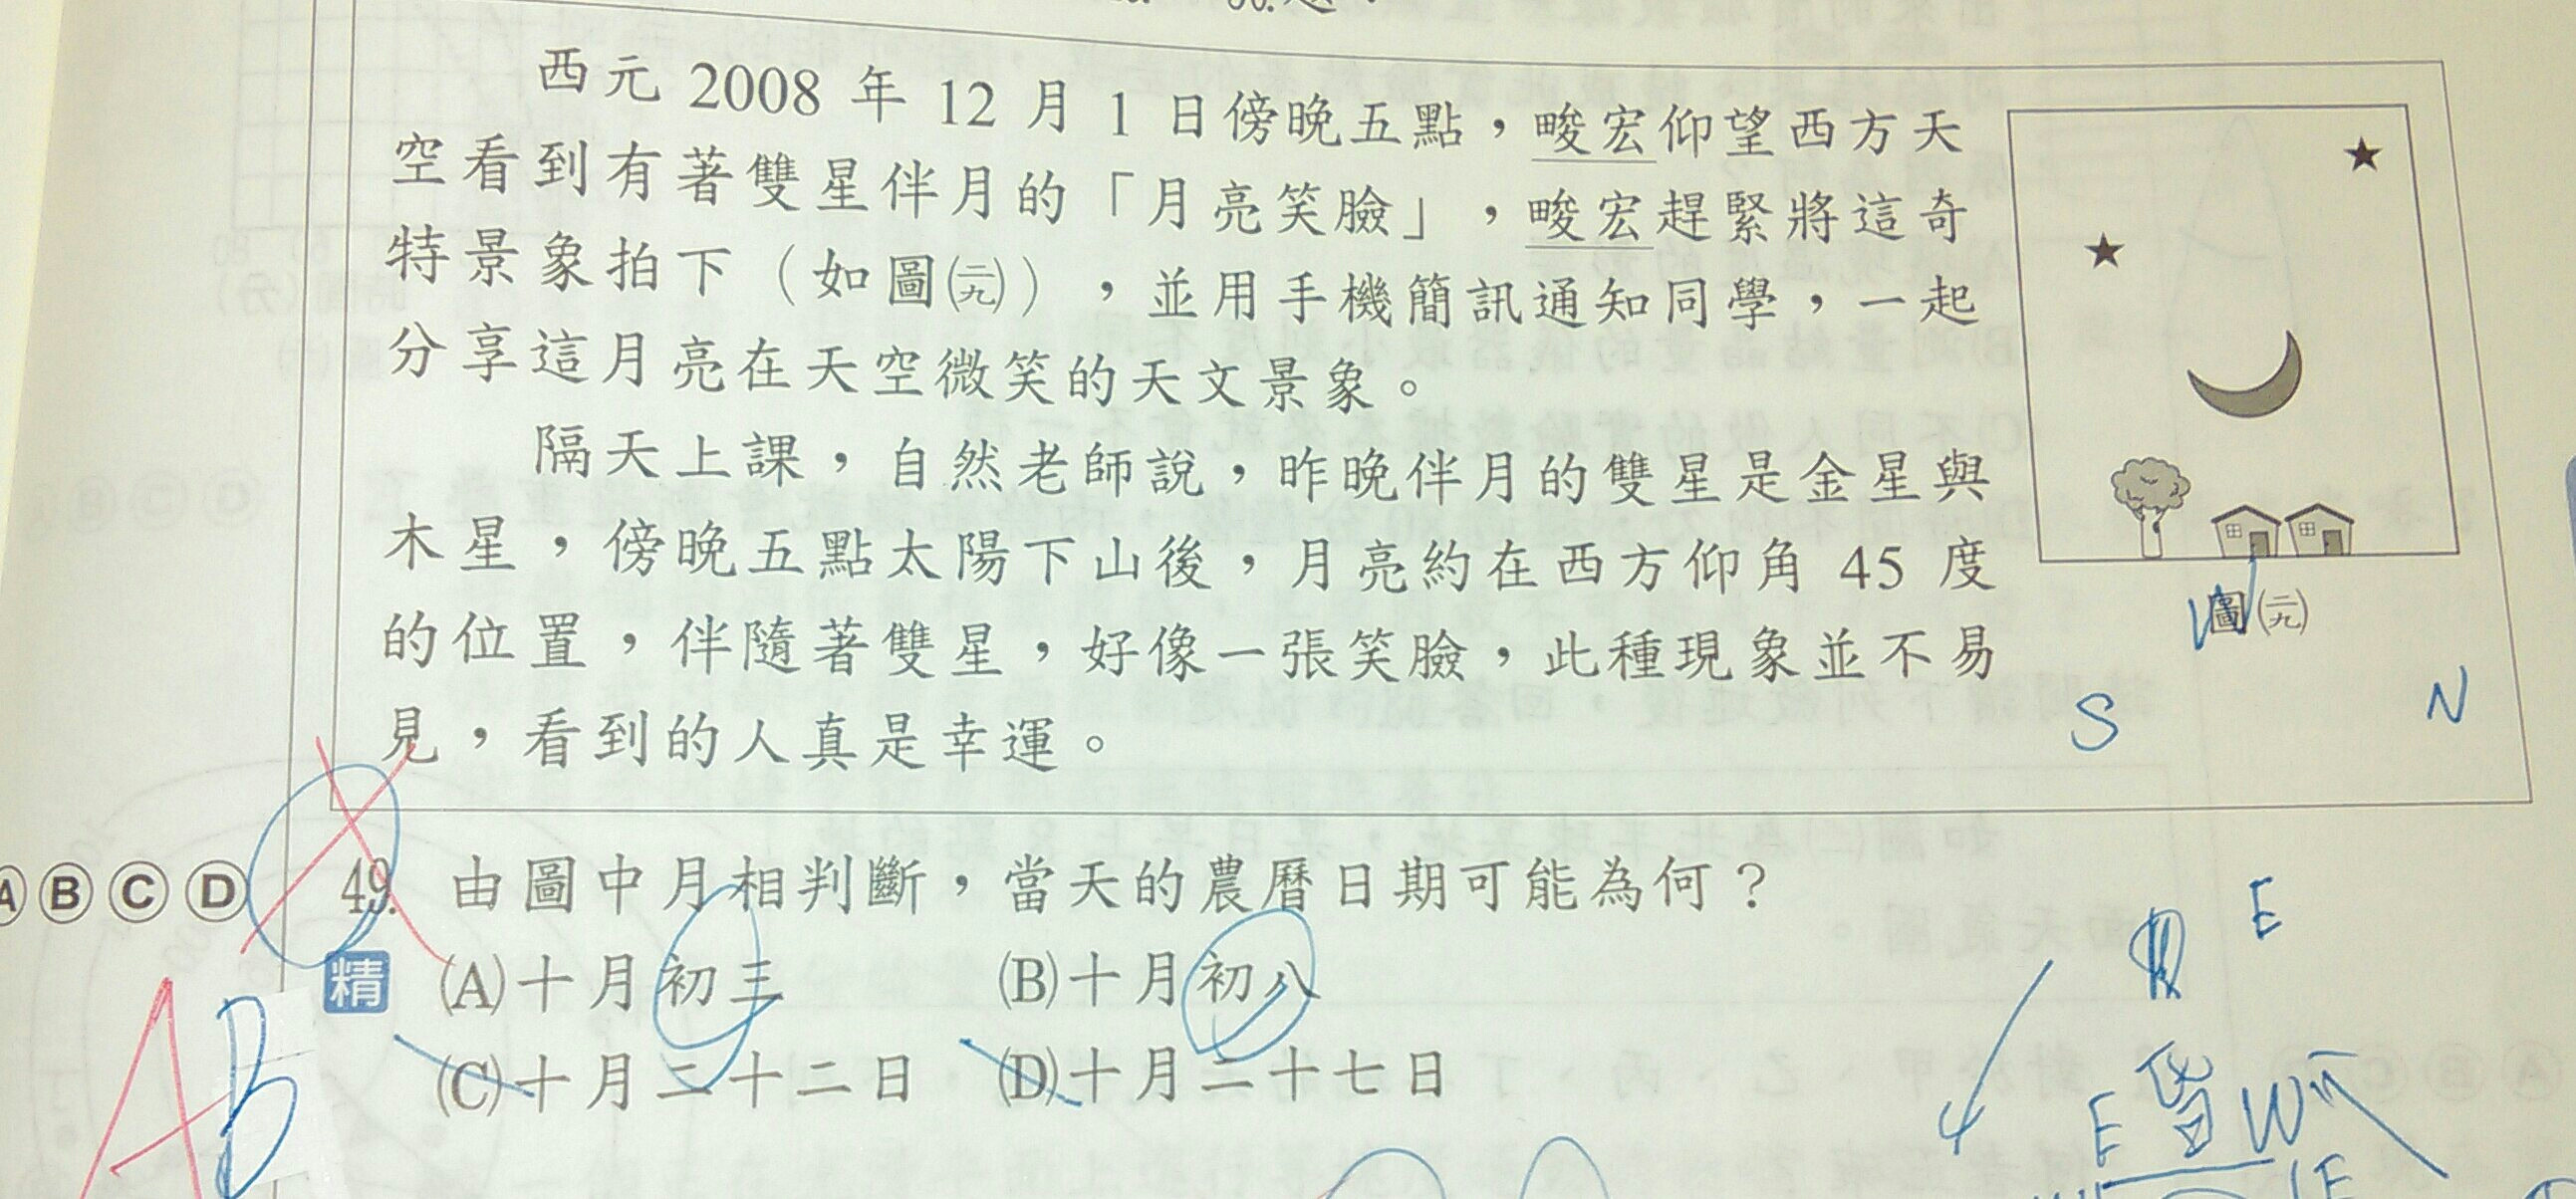 西元 2008 年 12 月 1 日傍晚五點，畯宏仰望西方天
空看到有著雙星伴月的「月亮笑臉」，畯宏趕緊將這奇
特景象拍下（如圖㈡九），並用手機簡訊通知同學，一起
分享這月亮在天空微笑的天文景象。
隔天上課，自然老師說，昨晚伴月的雙星是金星與
木星，傍晚五點太陽下山後，月亮約在西方仰角 45 度
的位置，伴隨著雙星，好像一張笑臉，此種現象並不易
見，看到的人真是幸運。
圖(二九)
W
S
N
Ⓐ Ⓑ Ⓒ Ⓓ 49. 由圖中月相判斷，當天的農曆日期可能為何？
精 (A)十月初三 (B)十月初八
(C)十月二十二日 (D)十月二十七日
A B
E
E W